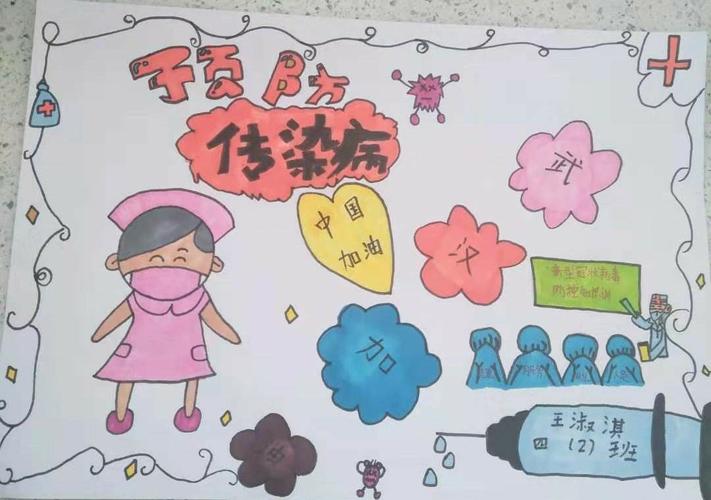 预防
传染病
中国
加油
武
汉
加
油
新型冠状病毒
防控知识培训
王淑淇
四(2)班